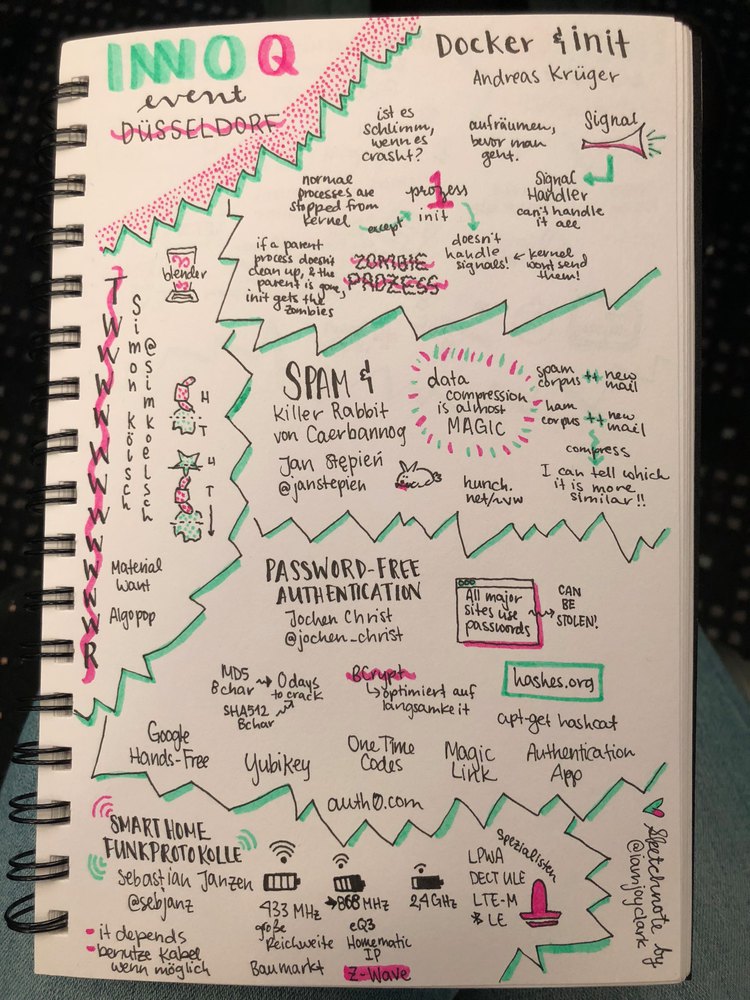 INNOQ
event
DÜSSELDORF
Docker & init
Andreas Krüger
ist es
schlimm,
wenn es
crasht?
aufräumen,
bevor man
geht.
Signal
Signal
Handler
can't handle
it all
normal
processes are
stopped from
kernel
except
prozess
1
init
doesn't
handle
signals!
← kernel
wont send
them!
if a parent
process doesn't
clean up, & the
parent is gone,
init gets the
zombies
ZOMBIE
PROZESS
TWWWWWWWWWWR
Simon Kölsch
@simkoelsch
blender
H
T
H
T
Material
want
Algopop
SPAM &
Killer Rabbit
von Caerbannog
Jan Stępień
@janstepien
data
compression
is almost
MAGIC
spam
corpus ++ new
mail
ham
corpus ++ new
mail
compress
I can tell which
it is more
similar!!
hunch.
net/~vw
PASSWORD-FREE
AUTHENTICATION
Jochen Christ
@jochen_christ
All major
sites use
passwords
CAN
BE
STOLEN!
MD5
8char → 0 days
to crack
SHA512
8char
BCrypt
↳ optimiert auf
langsamkeit
hashes.org
apt-get hashcat
Google
Hands-Free
Yubikey
One Time
Codes
Magic
Link
Authentication
App
auth0.com
SMART HOME
FUNKPROTOKOLLE
Sebastian Janzen
@sebjanz
- it depends
- benutze Kabel
wenn möglich
433 MHz
große
Reichweite
Baumarkt
→868 MHz
eQ3
Homematic
IP
Z-Wave
2,4 GHz
Spezialisten
LPWA
DECT ULE
LTE-M
LE
Sketchnote by
@iamjoyclark